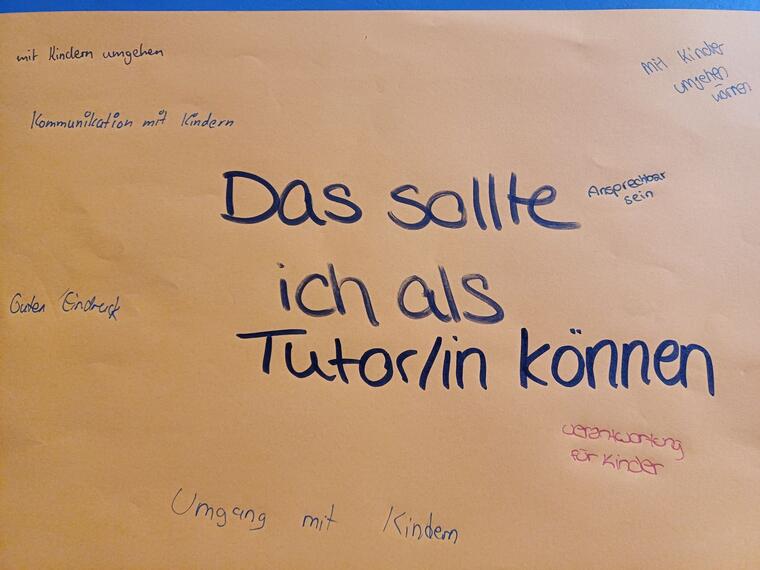 mit Kindern umgehen
mit Kinder
umgehen
können
Kommunikation mit Kindern
Das sollte
Ansprechbar
sein
ich als
Guten Eindruck
Tutor/in können
verantwortung
für Kinder
Umgang mit Kindern